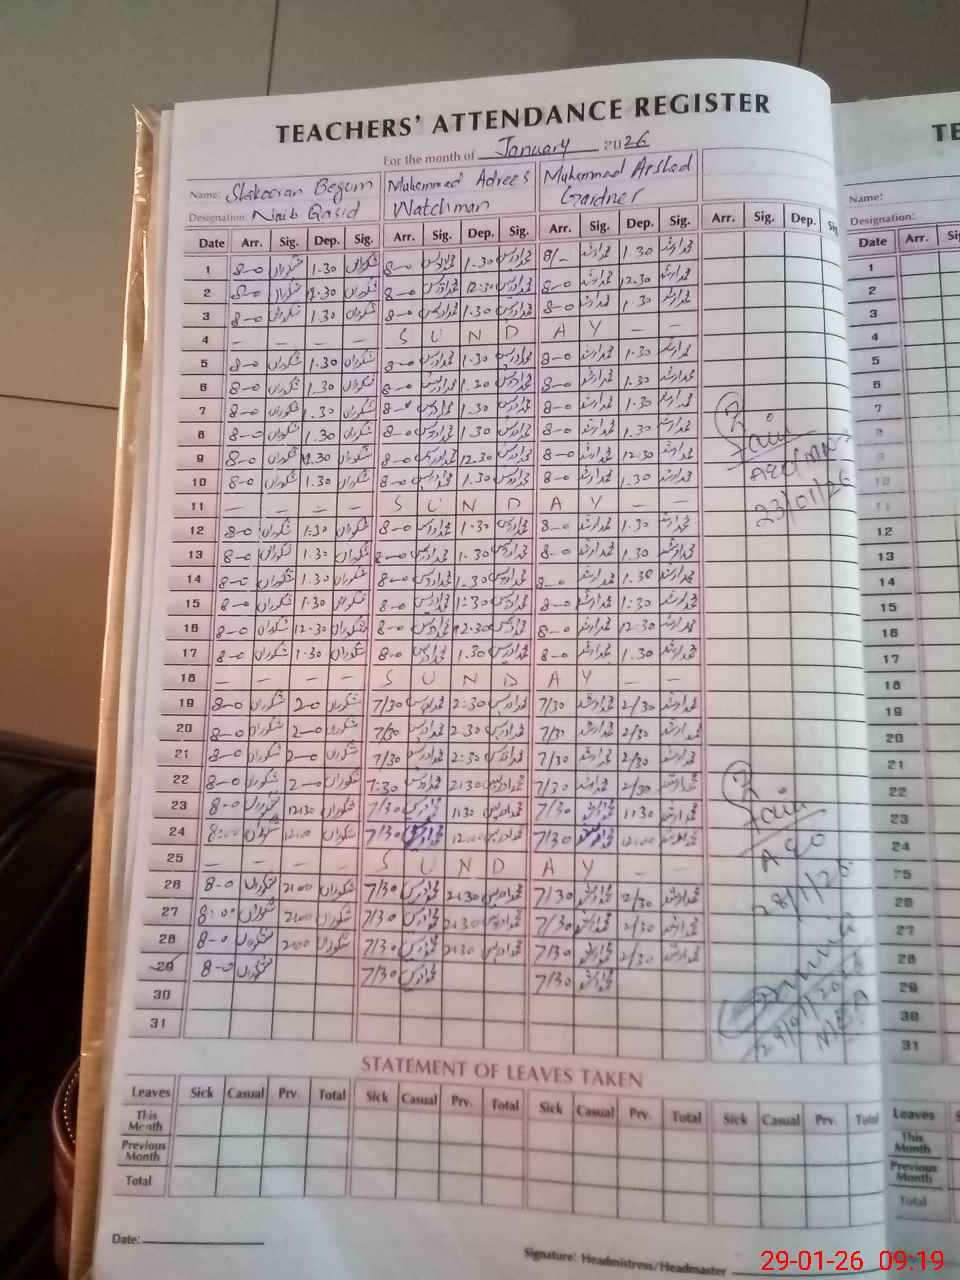 TEACHERS' ATTENDANCE REGISTER
For the month of January 2026
Name: Shakooran Begum Muhammad Adrees Muhammad Arshad
Designation: Naib Qasid Watchman Gardner
Date Arr. Sig. Dep. Sig. Arr. Sig. Dep. Sig. Arr. Sig. Dep. Sig. Arr. Sig. Dep. Sig.
1 8-0 شکوراں 1.30 شکوراں 8-0 محمد ادریس 1.30 محمد ادریس 8/- محمد ارشد 1.30 محمد ارشد
2 8-0 شکوراں 12.30 شکوراں 8-0 محمد ادریس 12:30 محمد ادریس 8-0 محمد ارشد 12.30 محمد ارشد
3 8-0 شکوراں 1.30 شکوراں 8-0 محمد ادریس 1.30 محمد ادریس 8-0 محمد ارشد 1.30 محمد ارشد
4 — — — — S U N D A Y — —
5 8-0 شکوراں 1.30 شکوراں 8-0 محمد ادریس 1.30 محمد ادریس 8-0 محمد ارشد 1.30 محمد ارشد
6 8-0 شکوراں 1.30 شکوراں 8-0 محمد ادریس 1.30 محمد ادریس 8-0 محمد ارشد 1.30 محمد ارشد
7 8-0 شکوراں 1.30 شکوراں 8-0 محمد ادریس 1.30 محمد ادریس 8-0 محمد ارشد 1.30 محمد ارشد
8 8-0 شکوراں 1.30 شکوراں 8-0 محمد ادریس 1.30 محمد ادریس 8-0 محمد ارشد 1.30 محمد ارشد
9 8-0 شکوراں 12.30 شکوراں 8-0 محمد ادریس 12.30 محمد ادریس 8-0 محمد ارشد 12.30 محمد ارشد
10 8-0 شکوراں 1.30 شکوراں 8-0 محمد ادریس 1.30 محمد ادریس 8-0 محمد ارشد 1.30 محمد ارشد
23/01/26
11 — — — — S U N D A Y —
12 8-0 شکوراں 1.30 شکوراں 8-0 محمد ادریس 1.30 محمد ادریس 8-0 محمد ارشد 1.30 محمد ارشد
13 8-0 شکوراں 1.30 شکوراں 8-0 محمد ادریس 1.30 محمد ادریس 8-0 محمد ارشد 1.30 محمد ارشد
14 8-0 شکوراں 1.30 شکوراں 8-0 محمد ادریس 1.30 محمد ادریس 8-0 محمد ارشد 1.30 محمد ارشد
15 8-0 شکوراں 1.30 شکوراں 8-0 محمد ادریس 1:30 محمد ادریس 8-0 محمد ارشد 1:30 محمد ارشد
16 8-0 شکوراں 12.30 شکوراں 8-0 محمد ادریس 12.30 محمد ادریس 8-0 محمد ارشد 12.30 محمد ارشد
17 8-0 شکوراں 1.30 شکوراں 8-0 محمد ادریس 1.30 محمد ادریس 8-0 محمد ارشد 1.30 محمد ارشد
18 — — — — S U N D A Y — —
19 8-0 شکوراں 2-0 شکوراں 7/30 محمد ادریس 2:30 محمد ادریس 7/30 محمد ارشد 2/30 محمد ارشد
20 8-0 شکوراں 2-0 شکوراں 7/30 محمد ادریس 2:30 محمد ادریس 7/30 محمد ارشد 2/30 محمد ارشد
21 8-0 شکوراں 2-0 شکوراں 7/30 محمد ادریس 2:30 محمد ادریس 7/30 محمد ارشد 2/30 محمد ارشد
22 8-0 شکوراں 2-0 شکوراں 7:30 محمد ادریس 2:30 محمد ادریس 7/30 محمد ارشد 2/30 محمد ارشد
23 8-0 شکوراں 12:30 شکوراں 7/30 محمد ادریس 1:30 محمد ادریس 7/30 محمد ارشد 1:30 محمد ارشد
24 8:00 شکوراں 12:00 شکوراں 7/30 محمد ادریس 12:00 محمد ادریس 7/30 محمد ارشد 12:00 محمد ارشد
AEO
25 — — — — S U N D A Y — —
28/1/26
26 8-0 شکوراں 2:00 شکوراں 7/30 محمد ادریس 2:30 محمد ادریس 7/30 محمد ارشد 2/30 محمد ارشد
27 8:00 شکوراں 2:00 شکوراں 7/30 محمد ادریس 2:30 محمد ادریس 7/30 محمد ارشد 2/30 محمد ارشد
28 8-0 شکوراں 2:00 شکوراں 7/30 محمد ادریس 2:30 محمد ادریس 7/30 محمد ارشد 2/30 محمد ارشد
29 8-0 شکوراں 7/30 محمد ادریس 7/30 محمد ارشد
30
31
STATEMENT OF LEAVES TAKEN
Leaves Sick Casual Prv. Total Sick Casual Prv. Total Sick Casual Prv. Total Sick Casual Prv. Total
This Month
Previous Month
Total
Date:
Signature: Headmistress/Headmaster
TE
Name:
Designation:
Date Arr.
1
2
3
4
5
6
7
12
13
14
15
16
17
18
19
20
21
22
23
24
25
26
27
28
29
30
31
Leaves
This Month
Previous Month
Total
29-01-26 09:19